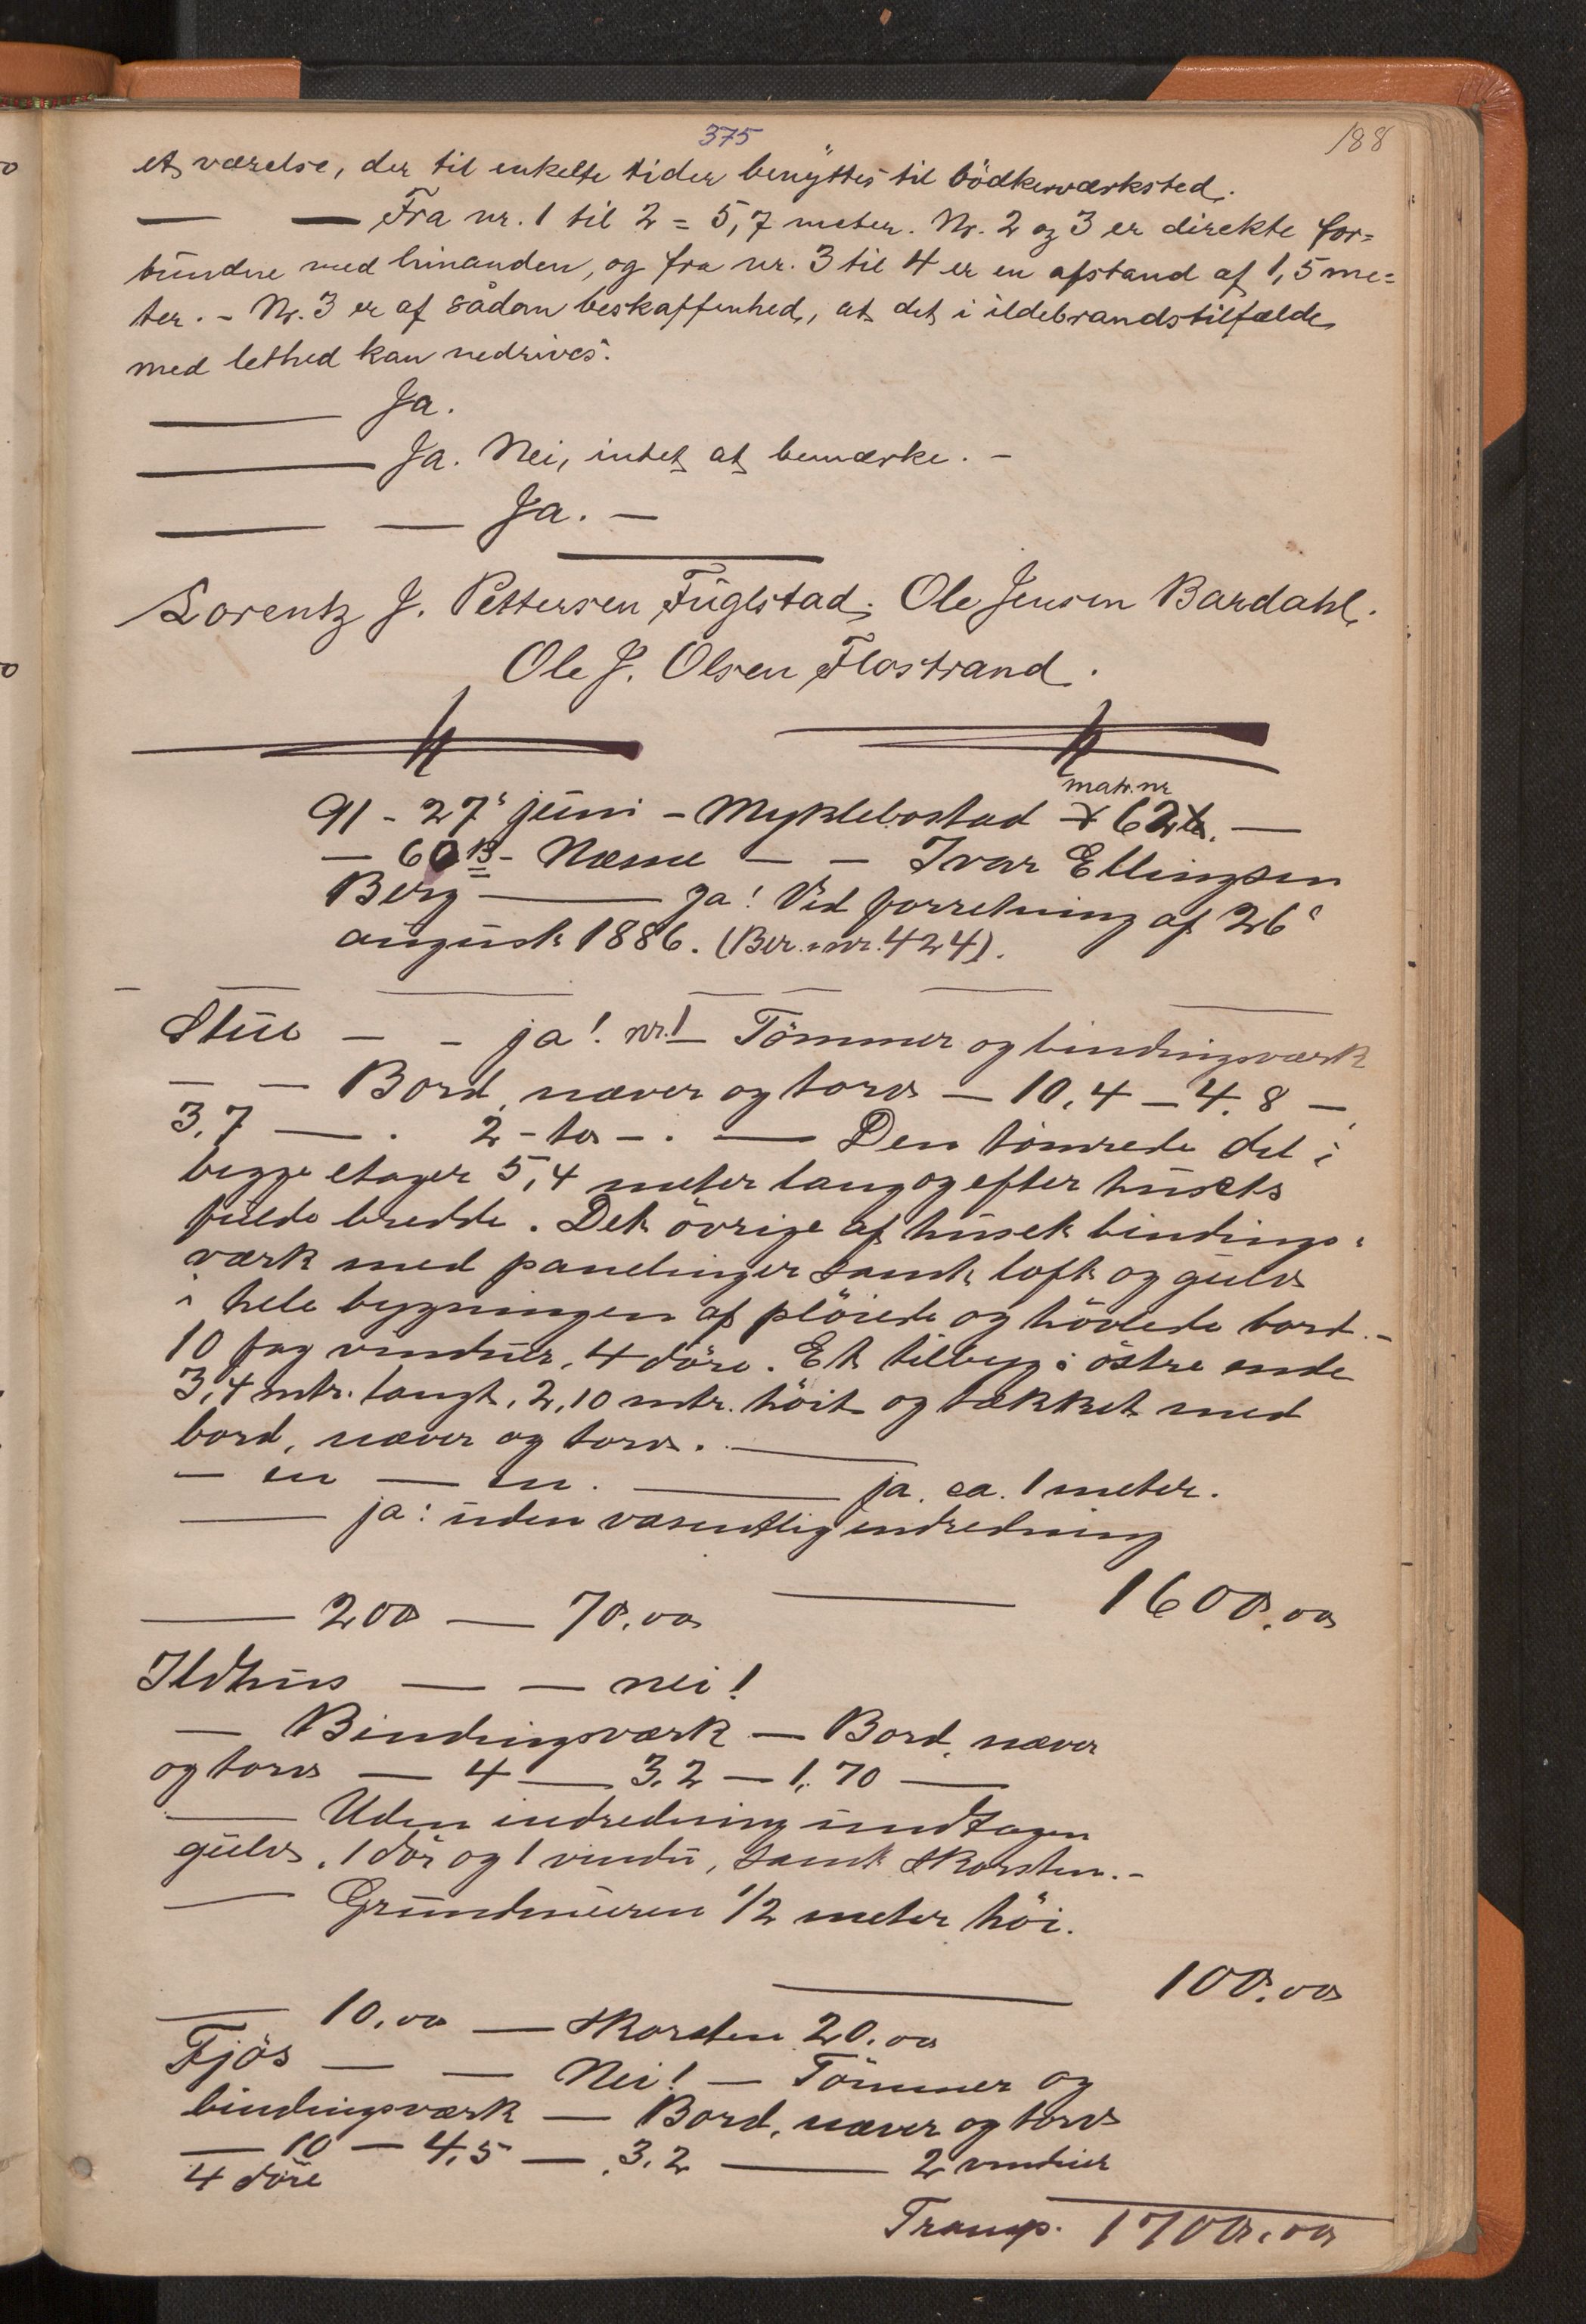 375
188
et værelse, der til enkelte tider benyttes til bödkerværksted.
— — Fra nr. 1 til 2 = 5,7 meter. Nr. 2 og 3 er direkte for=
bundne med hinanden, og fra nr. 3 til 4 er en afstand af 1,5 me=
ter. - Nr. 3 er af sådan beskaffenhed, at det i ildebrandstilfælde
med lethed kan nedrives.
— Ja.
— Ja. Nei, intet at bemærke. -
— — Ja. —
Lorentz J. Pettersen Fuglstad. Ole Jensen Bardahl.
Ole J. Olsen Flostrand.
matr. nr
91 - 27' juni - Myklebostad 62 —
— 60 B - Næsne — — Ivar Ellingsen
Berg — ja! Ved forretning af 26'
august 1886. (Ber. nr. 424).
Stue — - ja! nr. 1 — Tömmer og bindingsværk
— — Bord, næver og torv — 10,4 — 4,8 —
3,7 — . 2 - to - . — Den tömrede del i
begge etager 5,4 meter lang og efter husets
fulde bredde. Det övrige af huset bindings-
værk med panelinger samt loft og gulv
i hele bygningen af plöiede og hövlede bord. -
10 fag vinduer, 4 döre. Et tilbyg i östre ende
3,4 mtr. langt, 2,10 mtr. höit og tækket med
bord, næver og torv. —
— en — en. — ja. ca. 1 meter.
— ja: uden væsentlig indredning
— 200 — 70.00 — 1600.00
Ildhus — — nei!
— Bindingsværk — Bord, næver
og torv — 4 — 3,2 — 1,70 —
— Uden indredning undtagen
gulv, 1 dör og 1 vindu, samt skorsten. -
— Grundmuren 1/2 meter höi.
— 100.00
— 10.00 — Skorsten 20.00
Fjös — — Nei! — Tömmer og
bindingsværk — Bord, næver og torv
— 10 — 4,5 — 3,2 — 2 vinduer
4 döre
Transp. 1700.00